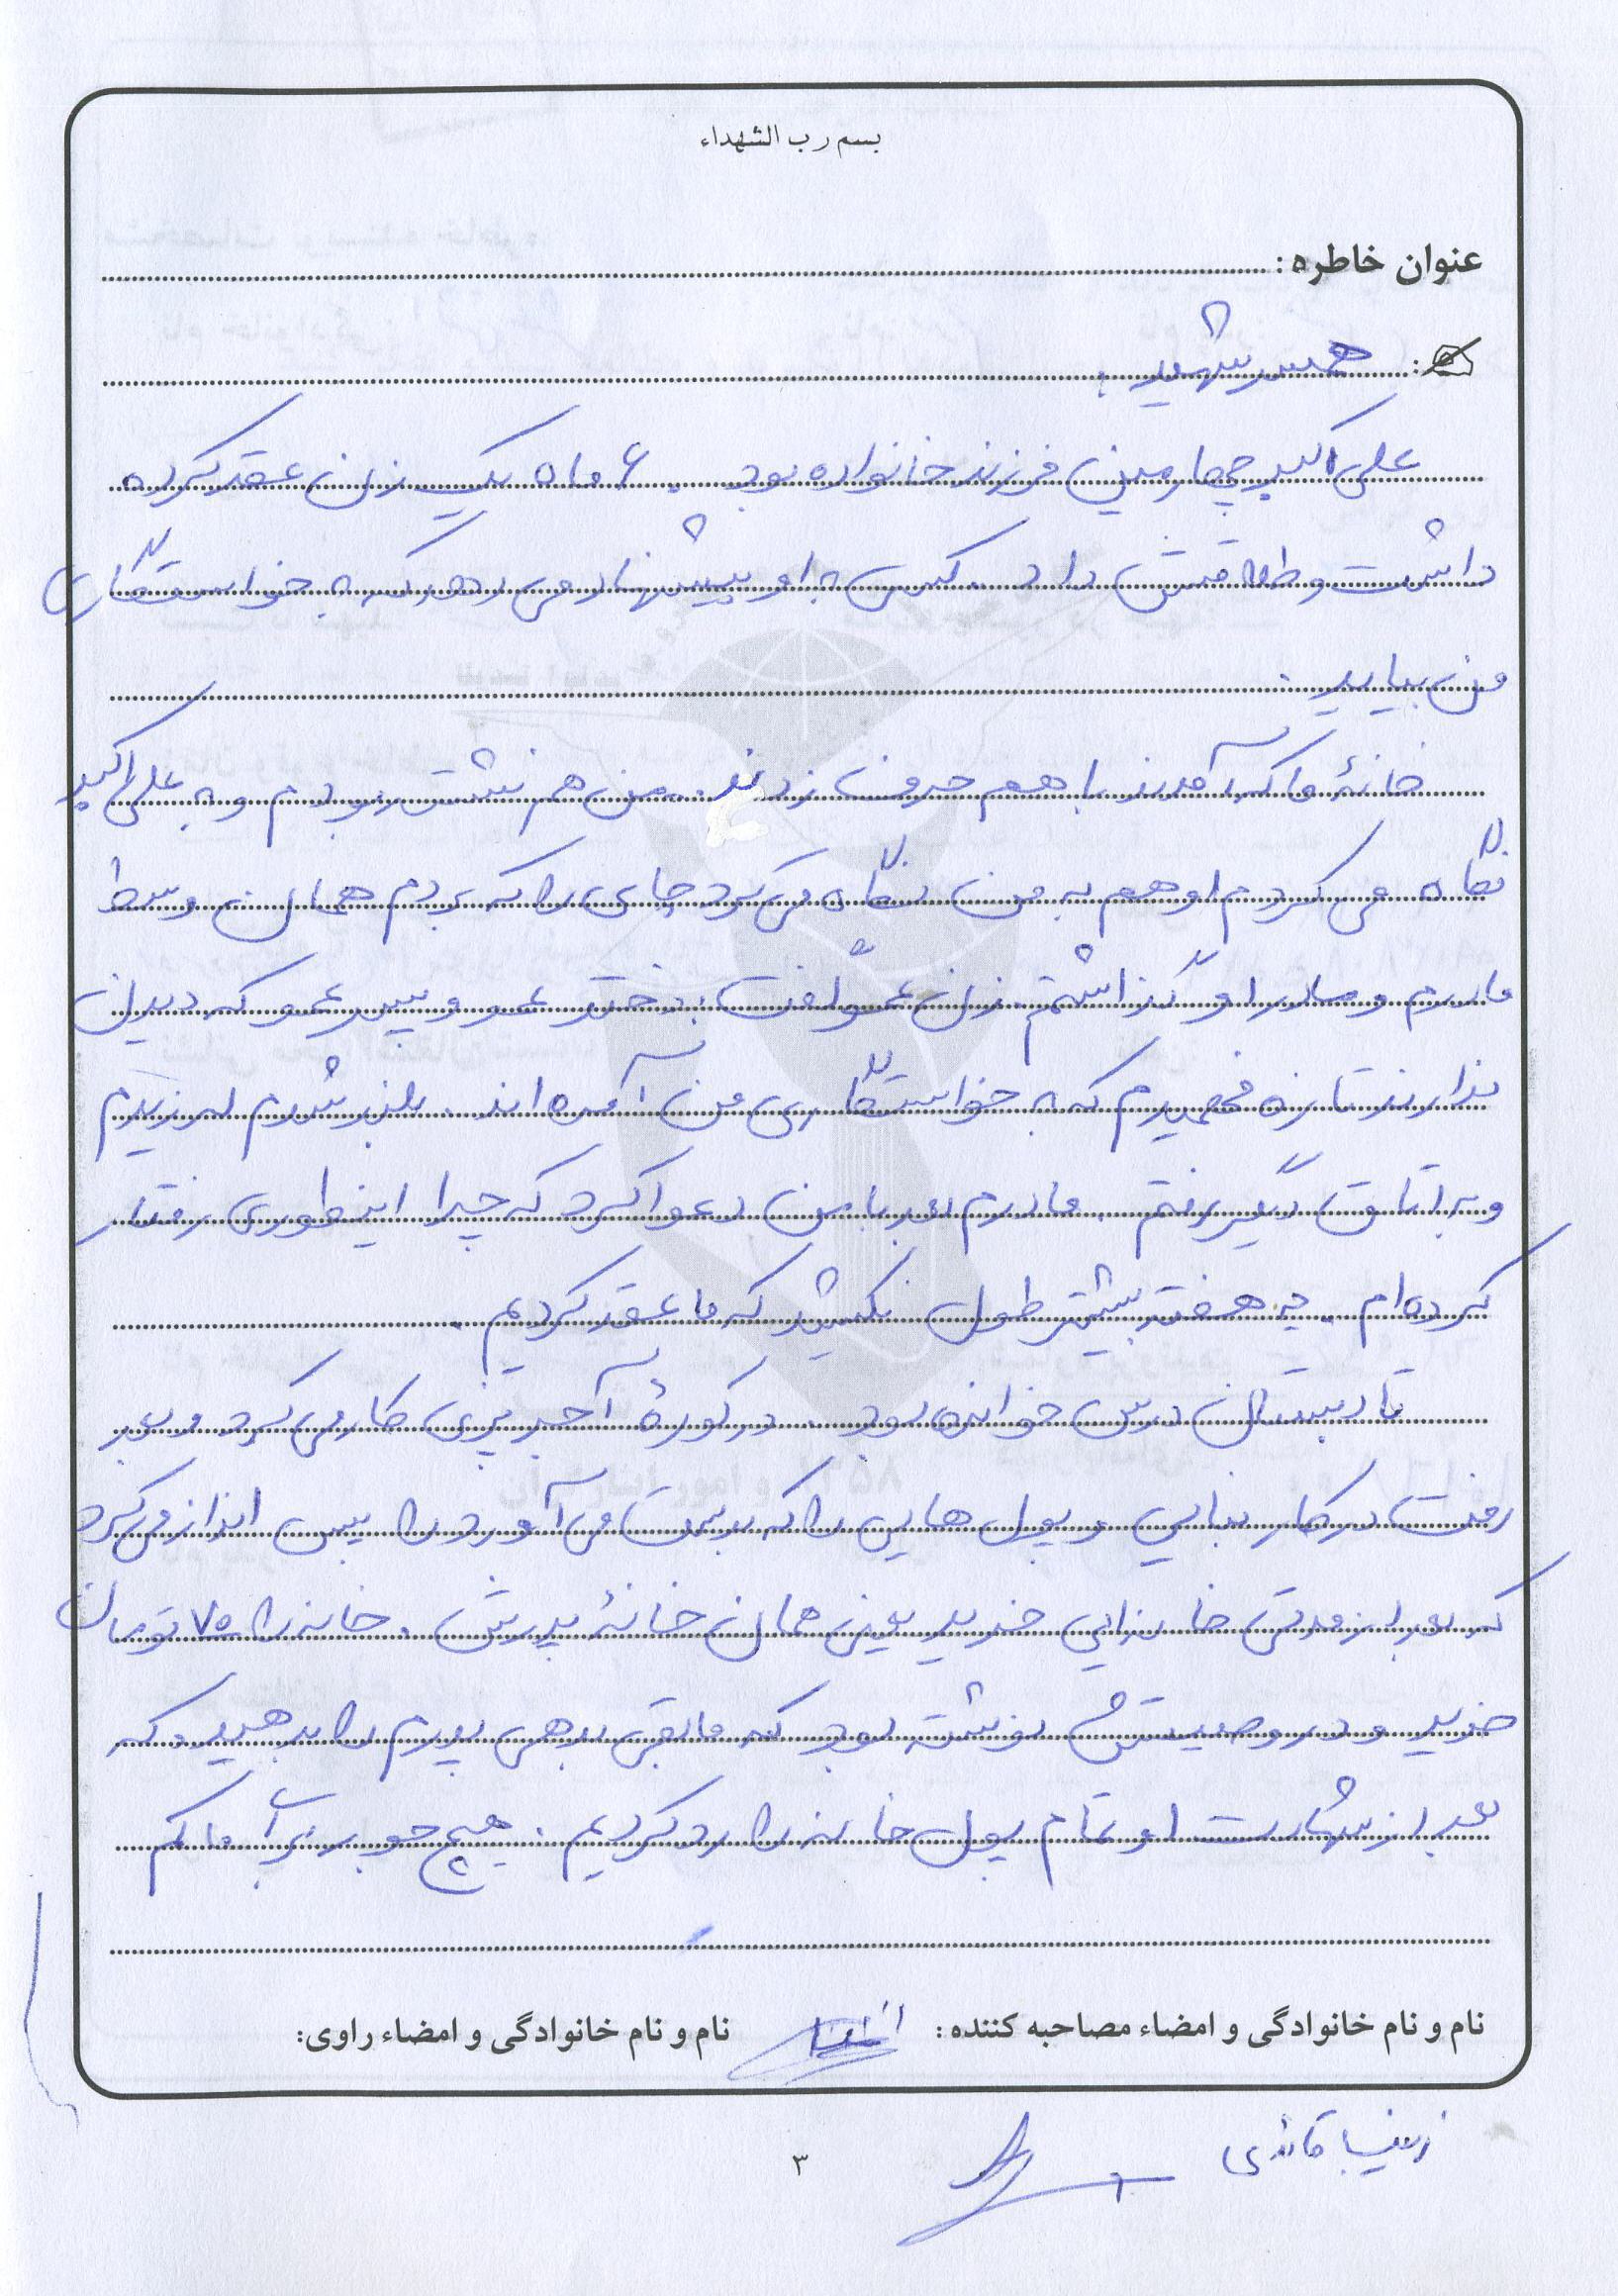 بسم رب الشهداء
عنوان خاطره:
همسر شهید:
علی اکبر چهارمین فرزند خانواده بود. ۶ ماه یک زن عقد کرده
داشت و طلاقش داد. کسی به او پیشنهاد می دهد که به خواستگاری
من بیاید.
خانهٔ ما که آمدند با هم حرف زدند. من هم نشته بودم و به علی اکبر
نگاه می کردم او هم به من نگاه می کرد چای را که بردم همان وسط
مادرم و مادر او گذاشتم. زن عمو گفت: دختر عمو و پسر عمو که دیدن
ندارند تازه فهمیدم که به خواستگاری من آمده اند. بلند شدم لرزیدم
و به اتاق دیگر رفتم. مادرم بعد با من دعوا کرد که چرا اینطوری رفتار
کرده ام. یه هفته بیشتر طول نکشید که ما عقد کردیم.
تا دبستان درس خوانده بود. در کورهٔ آجر پزی کار می کرد و بعد
رفت در کار بنایی و پول هایی را که بدست می آورد را پس انداز می کرد
که بعد از مدتی خانه ایی خرید یعنی همان خانهٔ پدرش. خانه را ۷۵ تومان
خرید و در وصیتش نوشته بود که مابقی بدهی پدرم را بدهید. که
بعد از شهادت او تمام پول خانه را رد کردیم. هیچ جور برای ما کم
نام و نام خانوادگی و امضاء مصاحبه کننده:
نام و نام خانوادگی و امضاء راوی:
قائدی
۳